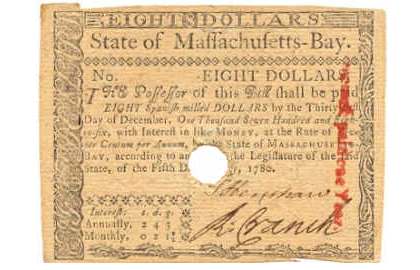 EIGHT DOLLARS
State of Maſſachuſetts-Bay.
No. EIGHT DOLLARS
THE Poſſeſſor of this Bill ſhall be paid
EIGHT Spaniſh milled DOLLARS by the Thirty
Day of December, One Thouſand Seven Hundred and
ty-ſix, with Intereſt in like MONEY, at the Rate of
per Centum per Annum, by the State of MASSACHUSETTS-
BAY, according to an of the Legiſlature of the
State, of the Fifth Day 1780.
R. Cranch
Intereſt: s. d. q.
Annually, 2 4 3
Monthly, 0 2 1